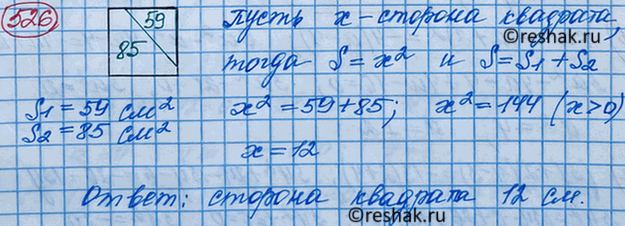 526
59
85
Пусть x - сторона квадрата,
тогда S = x² и S = S1 + S2
S1 = 59 см²
S2 = 85 см²
x² = 59 + 85; x² = 144 (x > 0)
x = 12
Ответ: сторона квадрата 12 см.
©reshak.ru